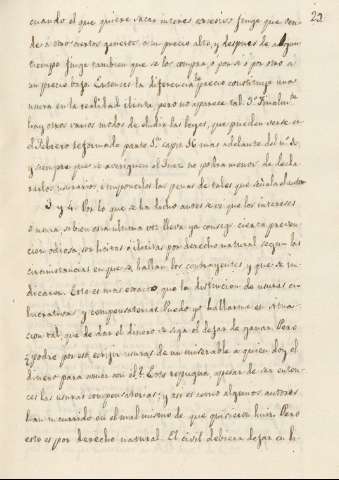 22
cuando el que quiere sacar interes excesivo finge que ven-
de á otro ciertos generos á un precio alto, y despues de algun
tiempo finge tambien que se los compra, ó por sí ó por otro á
un precio bajo. Entonces la diferencia precio constituye una
usura en la realidad ilicita, pero no aparece tal. 3.º Finalm.te
hay otros varios modos de eludir las leyes, que pueden verse en
el Febrero reformado parte 1.ª cap.º 16 mas adelante del n.º
y siempre que se averiguen el Juez no podrá menos de decla-
rarlos usurarios é imponerles las penas de tales que señala
3 y 4. Por lo que se ha dicho antes se ve que los intereses
ó usura, si bien esta ultima voz lleva ya consigo cierta preven-
cion odiosa, son licitos ó ilicitos por derecho natural segun las
circunstancias en que se hallan los contrayentes y que se in-
dicaron. Esto es mas exacto que la distincion de usuras en
lucrativas y compensatorias. Puedo yo hallarme en situa-
cion tal, que de dar el dinero se siga el dejar de ganar. Pero
¿podre por eso exigir usuras de un miserable á quien doy el
dinero para comer con él? Esto repugna, apesar de ser enton-
ces las usuras compensatorias; y asi es como algunos autores
han incurrido en el mal mismo de que quisieron huir. Pero
esto es por derecho natural. El civil debiera dejar en li-